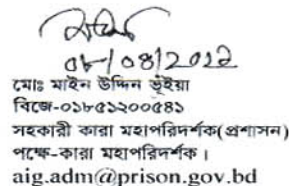 ০৮/০৪/২০১২
মোঃ মাইন উদ্দিন ভূঁইয়া
বিজে-০১৮৫১২০০৫৪১
সহকারী কারা মহাপরিদর্শক(প্রশাসন)
পক্ষে-কারা মহাপরিদর্শক।
aig.adm@prison.gov.bd